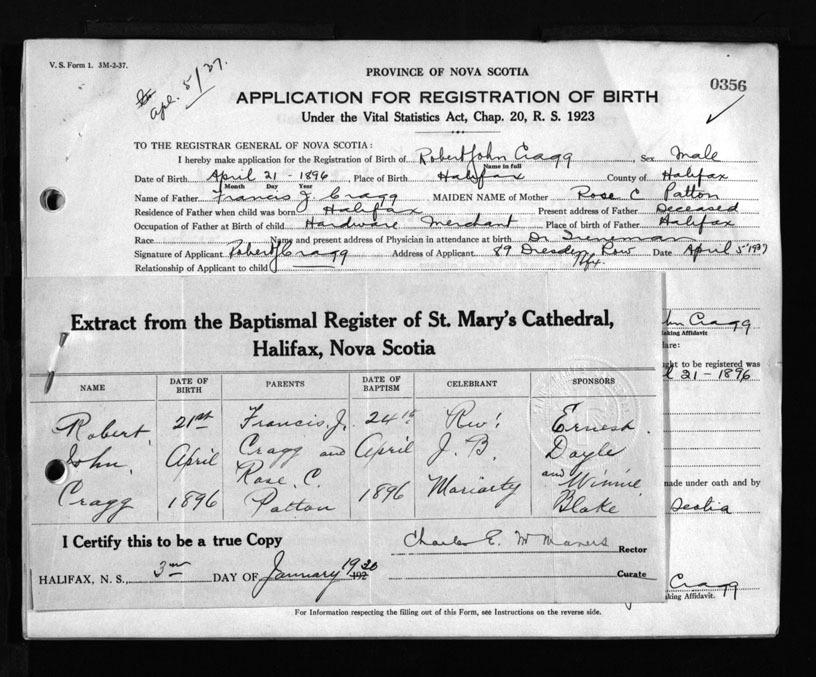 V. S. Form 1. 3M-2-37.
Apl. 5/37.
PROVINCE OF NOVA SCOTIA
0356
APPLICATION FOR REGISTRATION OF BIRTH
Under the Vital Statistics Act, Chap. 20, R. S. 1923
TO THE REGISTRAR GENERAL OF NOVA SCOTIA:
I hereby make application for the Registration of Birth of Robert John Cragg Sex Male
Name in full
Date of Birth April 21 - 1896 Place of Birth Halifax County of Halifax
Month Day Year
Name of Father Francis J. Cragg MAIDEN NAME of Mother Rose C Patton
Residence of Father when child was born Halifax Present address of Father Deceased
Occupation of Father at Birth of child Hardware Merchant Place of birth of Father Halifax
Race Name and present address of Physician in attendance at birth Dr
Signature of Applicant Robert J Cragg Address of Applicant 89 Dresden Row Hfx. Date April 5 1937
Relationship of Applicant to child
Extract from the Baptismal Register of St. Mary's Cathedral,
Halifax, Nova Scotia
NAME DATE OF BIRTH PARENTS DATE OF BAPTISM CELEBRANT SPONSORS
Robert 21st Francis J. 24th Rev. Ernest
John April Cragg and April J. B. Doyle
Cragg 1896 Rose C. Patton 1896 Moriarty and Winnie Blake
I Certify this to be a true Copy
Charles E. Rector
HALIFAX, N. S., 3rd DAY OF January 1930
Curate
hn Cragg
aking Affidavit
are:
ght to be registered was
l 21 - 1896
made under oath and by
Scotia
Cragg
aking Affidavit.
For Information respecting the filling out of this Form, see Instructions on the reverse side.